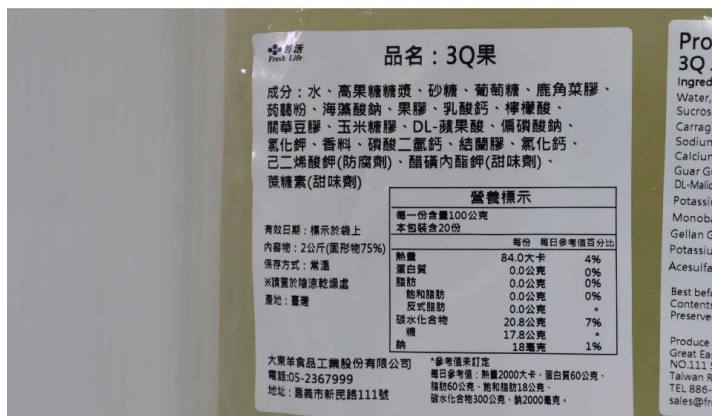 鮮活
Fresh Life
品名：3Q果
成分：水、高果糖糖漿、砂糖、葡萄糖、鹿角菜膠、
蒟蒻粉、海藻酸鈉、果膠、乳酸鈣、檸檬酸、
關華豆膠、玉米糖膠、DL-蘋果酸、偏磷酸鈉、
氯化鉀、香料、磷酸二氫鈣、結蘭膠、氯化鈣、
己二烯酸鉀(防腐劑)、醋磺內酯鉀(甜味劑)、
蔗糖素(甜味劑)
有效日期：標示於袋上
內容物：2公斤(固形物75%)
保存方式：常溫
※請置於陰涼乾燥處
產地：臺灣
營養標示
每一份含量100公克
本包裝含20份
每份 每日參考值百分比
熱量 84.0大卡 4%
蛋白質 0.0公克 0%
脂肪 0.0公克 0%
飽和脂肪 0.0公克 0%
反式脂肪 0.0公克 *
碳水化合物 20.8公克 7%
糖 17.8公克 *
鈉 18毫克 1%
*參考值未訂定
每日參考值：熱量2000大卡、蛋白質60公克、
脂肪60公克、飽和脂肪18公克、
碳水化合物300公克、鈉2000毫克。
大東羊食品工業股份有限公司
電話:05-2367999
地址：嘉義市新民路111號
Pro
3Q
Ingred
Water,
Sucros
Carrag
Sodium
Calcium
Guar G
DL-Malic
Potassiu
Monoba
Gellan G
Potassiu
Acesulfa
Best befo
Contents
Preserve
Produce
Great Eas
NO.111 S
Taiwan R
TEL 886-
sales@fr